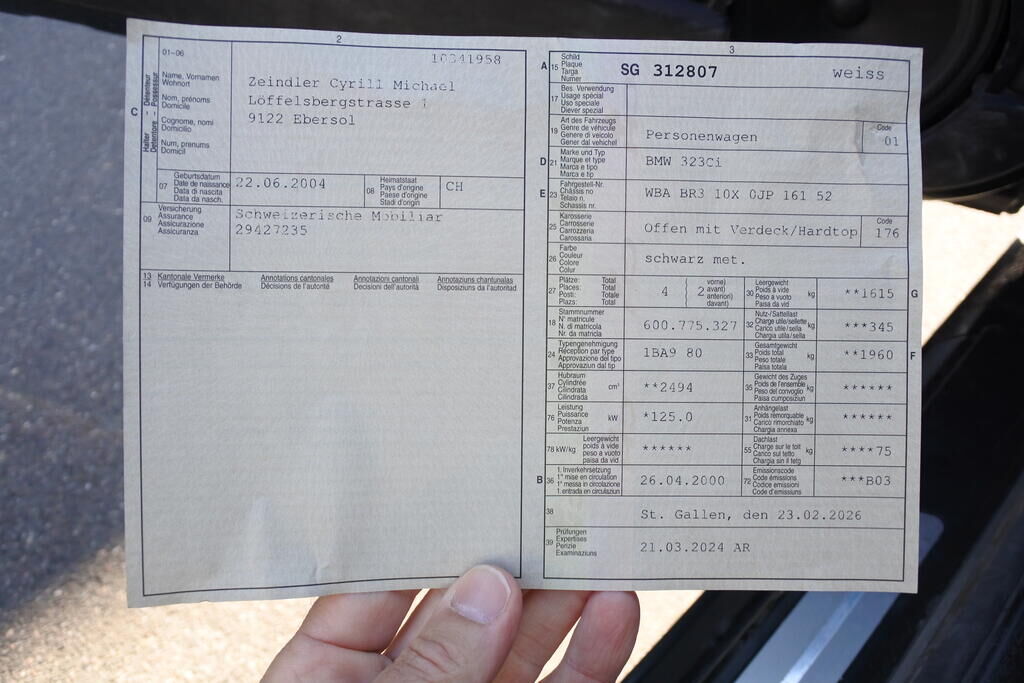 2
01-06
10341958
C
Halter Détenteur
Detentore Possessur
Name, Vornamen
Wohnort
Nom, prénoms
Domicile
Cognome, nomi
Domicilio
Num, prenums
Domicil
Zeindler Cyrill Michael
Löffelsbergstrasse 1
9122 Ebersol
07
Geburtsdatum
Date de naissance
Data di nascita
Data da nasch.
22.06.2004
08
Heimatstaat
Pays d'origine
Paese d'origine
Stadi d'origin
CH
09
Versicherung
Assurance
Assicurazione
Assicuranza
Schweizerische Mobiliar
29427235
13 Kantonale Vermerke Annotations cantonales Annotazioni cantonali Annotaziuns chantunalas
14 Verfügungen der Behörde Décisions de l'autorité Decisioni dell'autorità Disposiziuns da l'autoritad
3
A 15
Schild
Plaque
Targa
Numer
SG 312807 weiss
17
Bes. Verwendung
Usage spécial
Uso speciale
Diever spezial
19
Art des Fahrzeugs
Genre de véhicule
Genere di veicolo
Gener dal vehichel
Personenwagen
Code
01
D 21
Marke und Typ
Marque et type
Marca e tipo
Marca e tip
BMW 323Ci
E 23
Fahrgestell-Nr.
Châssis no
Telaio n.
Schassis nr.
WBA BR3 10X 0JP 161 52
25
Karosserie
Carrosserie
Carrozzeria
Carossaria
Offen mit Verdeck/Hardtop
Code
176
26
Farbe
Couleur
Colore
Colur
schwarz met.
27
Plätze: Total
Places: Total
Posti: Totale
Plazs: Total
4
2
vorne)
avant)
anteriori)
davant)
30
Leergewicht
Poids à vide
Peso a vuoto
Paisa da vid
kg
**1615
G
18
Stammnummer
N° matricule
N. di matricola
Nr. da matricla
600.775.327
32
Nutz-/Sattellast
Charge utile/sellette
Carico utile/sella
Chargia utila/sella
kg
***345
24
Typengenehmigung
Réception par type
Approvazione del tipo
Approvaziun dal tip
1BA9 80
33
Gesamtgewicht
Poids total
Peso totale
Paisa totala
kg
**1960
F
37
Hubraum
Cylindrée
Cilindrata
Cilindrada
cm³
**2494
35
Gewicht des Zuges
Poids de l'ensemble
Peso del convoglio
Paisa cumposiziun
kg
******
76
Leistung
Puissance
Potenza
Prestaziun
kW
*125.0
31
Anhängelast
Poids remorquable
Carico rimorchiato
Chargia annexa
kg
******
78 kW/kg
Leergewicht
poids à vide
peso a vuoto
paisa da vid
******
55
Dachlast
Charge sur le toit
Carico sul tetto
Chargia sin il tetg
kg
****75
B 36
1. Inverkehrsetzung
1re mise en circulation
1a messa in circolazione
1. entrada en circulaziun
26.04.2000
72
Emissionscode
Code émissions
Codice emissioni
Code d'emissiuns
***B03
38
St. Gallen, den 23.02.2026
39
Prüfungen
Expertises
Perizie
Examinaziuns
21.03.2024 AR